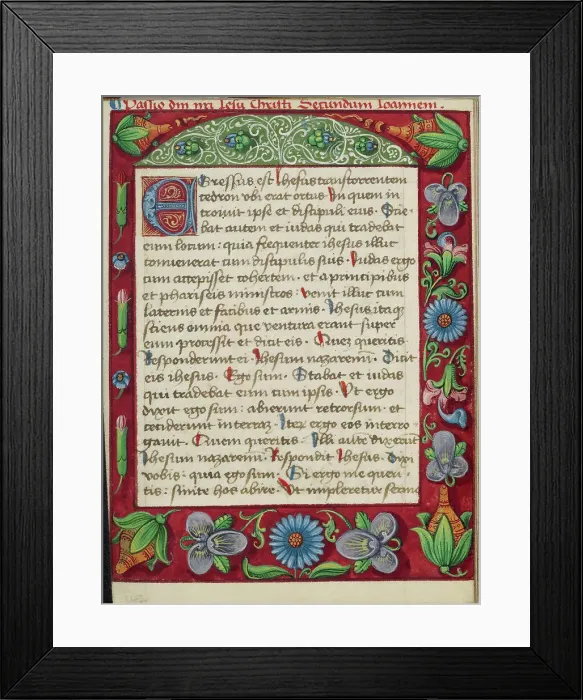 Passio dm nri Iesu Christi Secundum Ioannem.
Egressus est Ihesus trans torrentem
cedron vbi erat ortus In quem in
troiuit ipse et discipuli eius · Scie-
bat autem et iudas qui tradebat
eum locum : quia frequenter ihesus illuc
conuenerat cum discipulis suis · Iudas ergo
cum accepisset cohertem · et a principibus
et phariseis ministros : venit illuc cum
laternis et facibus et armis · Ihesus itaq
sciens omnia que ventura erant super
eum processit et dicit eis · Quez queritis
Responderunt ei · Ihesum nazarenū · Dicit
eis ihesus · Ego sum · Stabat et iudas
qui tradebat eum cum ipsis · Vt ergo
dixit ego sum : abierunt retrorsum · et
ceciderunt in terraz · Iterz ergo eos interro-
gauit · Quem queritis · Illi autē dixerūt
Ihesum nazarenū · Respondit Ihesus · Dixi
vobis : quia ego sum · Si ergo me queri-
tis : sinite hos abire · Vt impleretur sermo